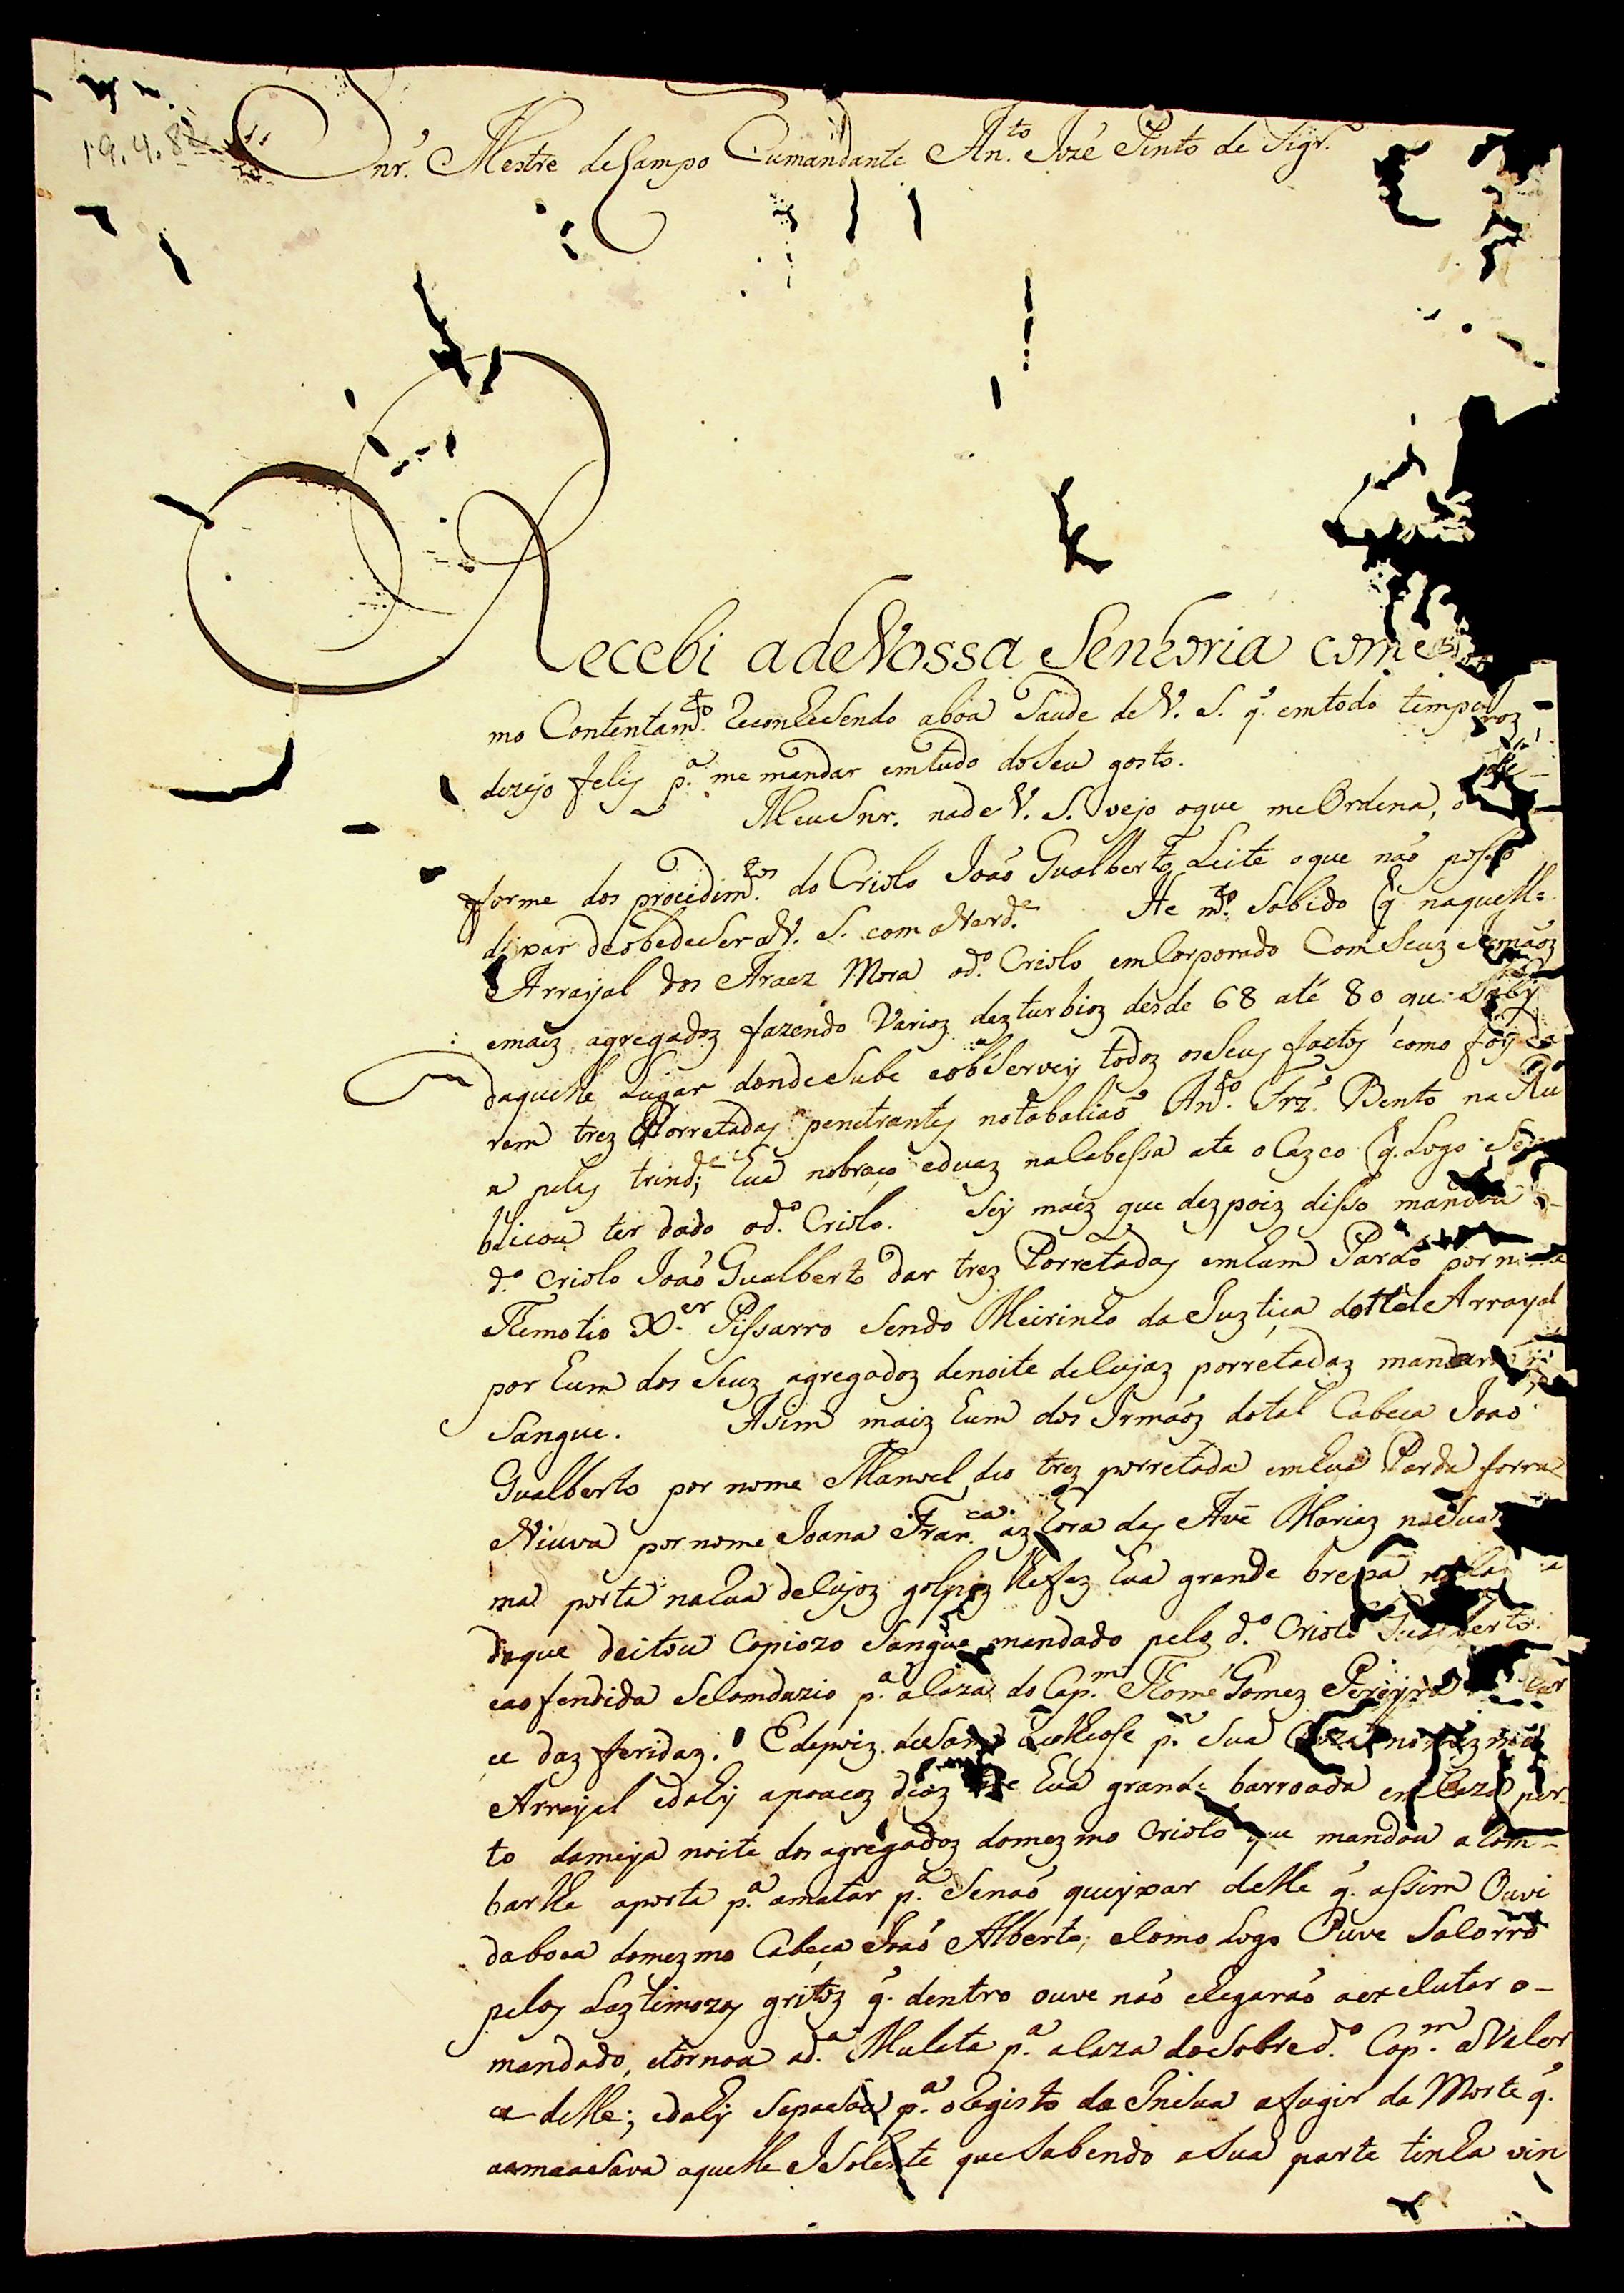 19.4.82
Snr. Mestre de Campo Cumandante An.to Joze Pinto de Figr.
Recebi a de Vossa Senhoria com
mo Contentam.to Reconhesendo aboa Saude de V. S. q. emtodo tempo
dezejo felis p.a me mandar emtudo doSeu gosto.
Meu Snr. nade V. S. vejo oque me Ordena, o
forme dos procedim.tos do Criolo João Gualberto Leite oque não posso
deixar deobedeSer aV. S. com aVerd.e He m.to Sabido q. naquelle
Arrayal dos Araez Mora od.o Criolo emCorporado Com Seuz Irmãoz
emaiz agregadoz fazendo Varioz dezturbioz desde 68 até 80 que Sahy
daquelle Lugar dondeSube eobServey todoz osSeuz factoz como foy da
rem trez Porretadaz penetrantez notabalião An.to Frz. Bento na Ru
a pelaz trind.es hua nobraço eduaz naCabessa ate oCazco q. Logo Se
blicou ter dado od.o Criolo. Sey maiz que dezpoiz disso mandou
d.o Criolo João Gualberto dar trez Porretadaz emhum Pardo por
Themotio X.er Pissarro Sendo Meirinho da Juztiça dottal Arrayal
por hum dos Seuz agregadoz denoite deCujaz porretadaz mandar
Sangue. Asim maiz hum dos Irmãoz dotal Cabeca João
Gualberto por nome Manoel deo trez porretada emhua Parda forra
Viuva por nome Joana Fran.ca az hora daz Ave Mariaz na Sua
ma porta narua deCujoz golpez lhefez hua grande brexa
deque deitou Copiozo Sangue mandado pelo d.o Criolo Gualberto
eaofendida SeComduzio p.a aCaza do Cap.m Thomé Gomez Pereyra
ce daz feridaz. Edepoiz deSam recolheose p.a Sua Caza nomezmo
Arrayal edahy apoucoz dioz hua grande barroada em Caza per-
to dameya noite dos agregadoz domezmo Criolo que mandou aCom-
barlhe aporta p.a amatar p.a Senão queyxar delle q. assim Ouvi
daboca domezmo Cabeça João Alberto, eComo Logo Ouve SoCorro
peloz Laztimozoz gritoz q. dentro ouve não chegarão aexeCutar o-
mandado, etornou ad.a Mulata p.a aCaza doSobred.o Cap.m aValer
ce delle; edahy Sepasou p.a oRegisto da InSua afugir da Morte q.
aameaSava aquelle ISolente queSabendo aSua parte tinha vin